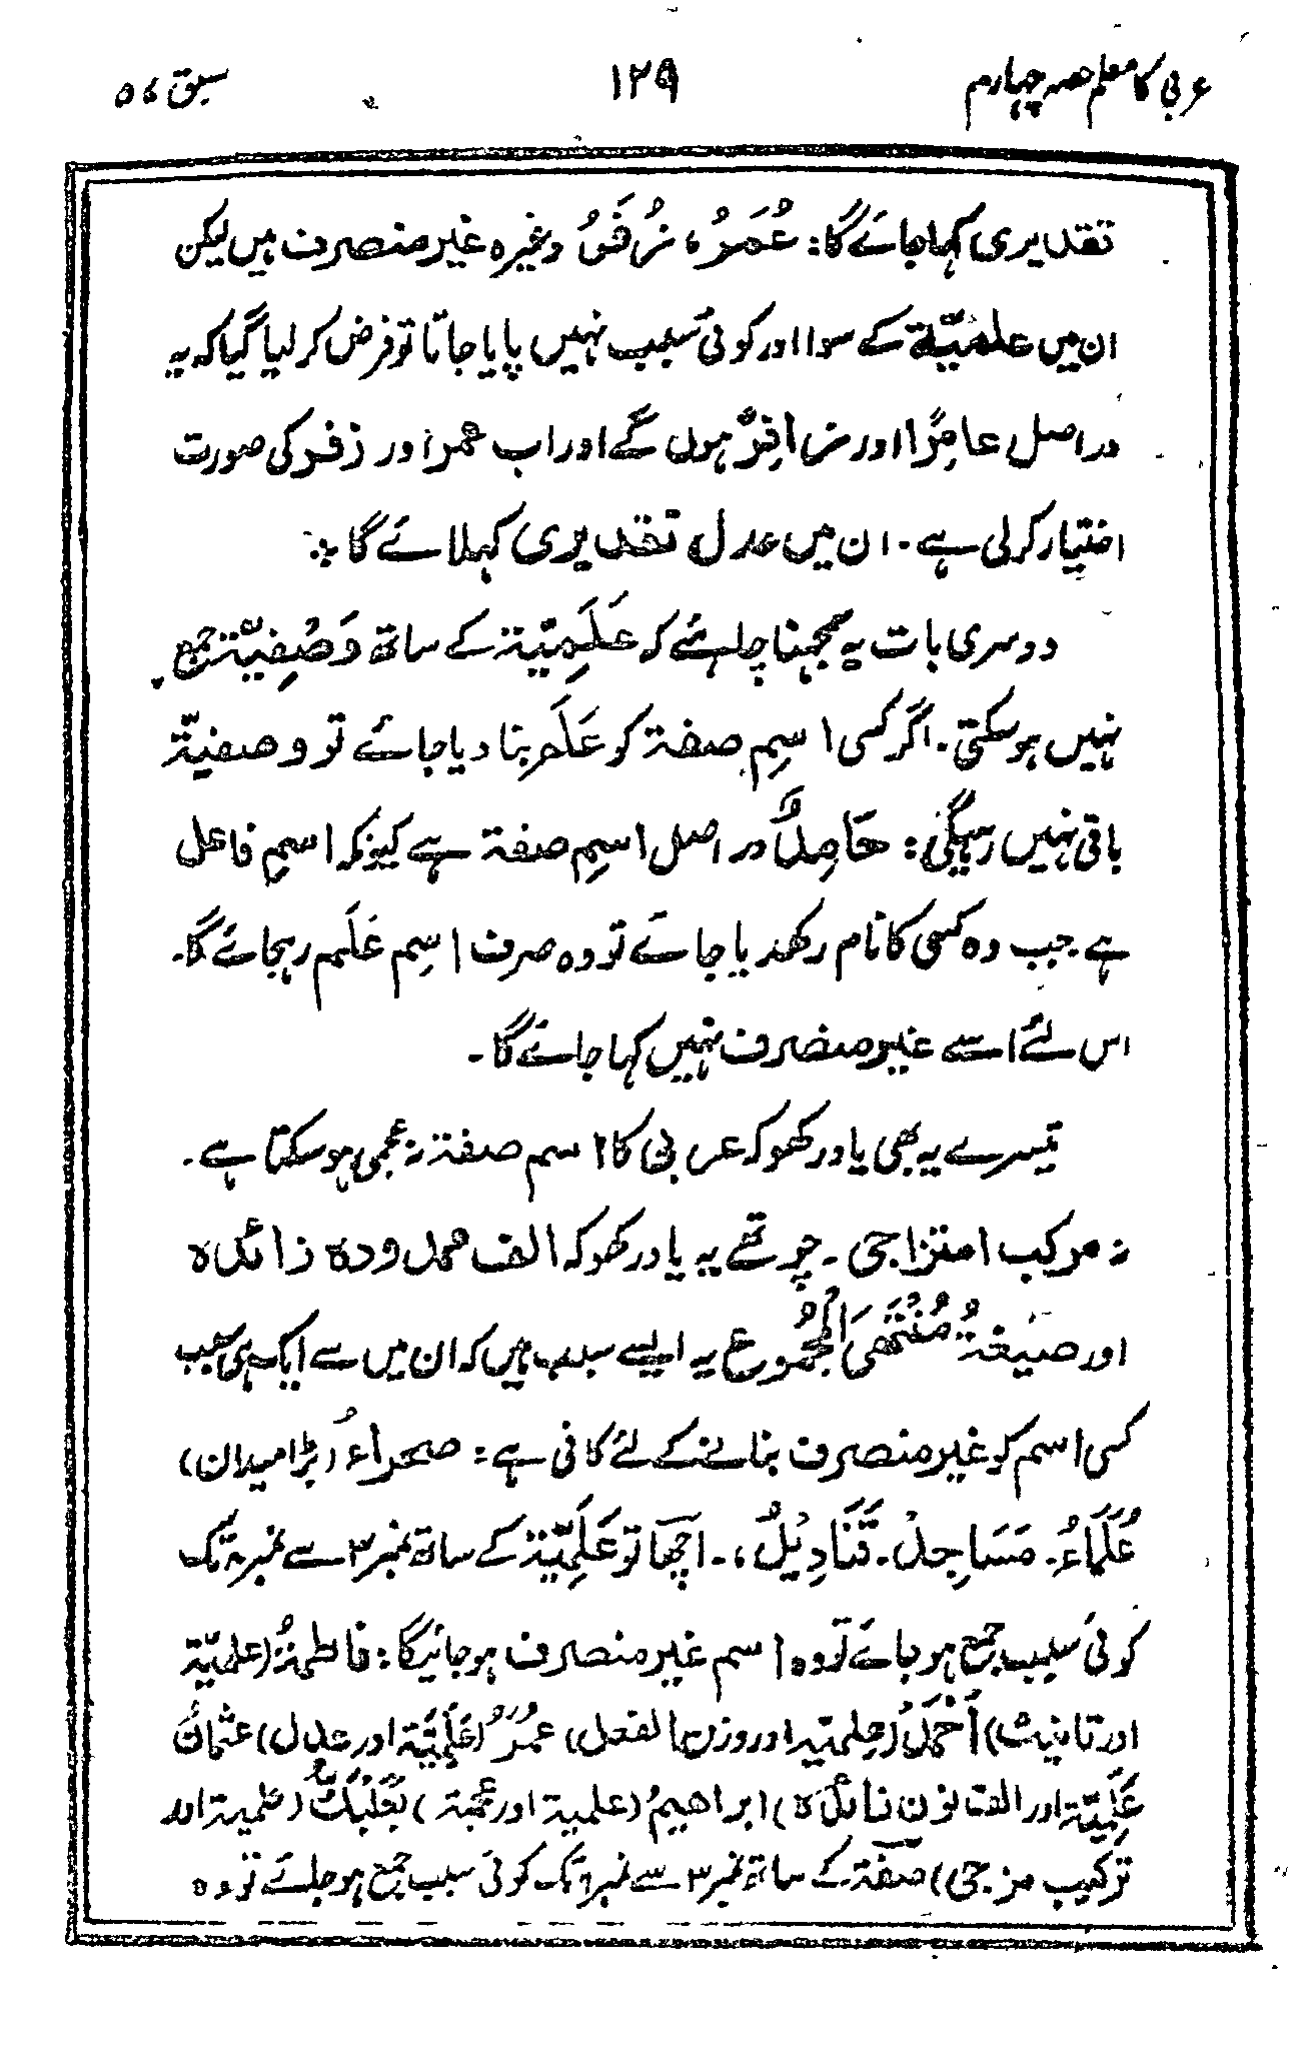 عربی کا معلم حصہ چہارم ۱۲۹ سبق ۵۷
تقدیری کہا جائے گا: عُمَرُ، زُفَرُ وغیرہ غیر منصرف ہیں لیکن
ان میں علمیّۃ کے سوا اور کوئی سبب نہیں پایا جاتا تو فرض کر لیا گیا کہ یہ
در اصل عامِرٌ اور زافِرٌ ہوں گے اور اب عمر اور زفر کی صورت
اختیار کر لی ہے۔ ان میں عدل تقدیری کہلائے گا
دوسری بات یہ سمجھنا چاہئے کہ عَلَمِیّۃ کے ساتھ وَصْفِیّۃ جمع
نہیں ہو سکتی۔ اگر کسی اسمِ صفۃ کو عَلَم بنا دیا جائے تو وصفیۃ
باقی نہیں رہیگی: حَامِدٌ در اصل اسمِ صفۃ ہے کیونکہ اسمِ فاعل
ہے جب وہ کسی کا نام رکھدیا جائے تو وہ صرف اسِم عَلَم رہجائے گا۔
اس لئے اسے غیر منصرف نہیں کہا جائے گا۔
تیسرے یہ بھی یاد رکھو کہ عربی کا اسم صفۃ نہ عجمی ہو سکتا ہے۔
نہ مرکب امتزاجی۔ چوتھے یہ یاد رکھو کہ الف ممدودہ زائدہ
اور صیغۃُ مُنْتَھَی الْجُمُوع یہ ایسے سبب ہیں کہ ان میں سے ایک ہی سبب
کسی اسم کو غیر منصرف بنانے کے لئے کافی ہے: صحراءُ (بڑا میدان)
عُلَمَاءُ۔ مَسَاجِدُ۔ قَنَادِیْلُ،۔ اچھا تو عَلَمِیّۃ کے ساتھ نمبر ۳ سے نمبر ۸ تک
کوئی سبب جمع ہو جائے تو وہ اسم غیر منصرف ہو جائیگا: فاطمۃُ (علمیّۃ
اور تانیث) أَحْمَدُ (علمیّۃ اور وزن الفعل) عُمَرُ (عَلَمِیَّۃ اور عدل) عثمانُ
عَلَمِیّۃ اور الف نون زائدہ) ابراھیمُ (علمیۃ اور عجمۃ) بَعْلَبَكُّ (علمیۃ اور
ترکیب مزجی) صفۃ کے ساتھ نمبر ۳ سے نمبر ۶ تک کوئی سبب جمع ہو جائے تو وہ